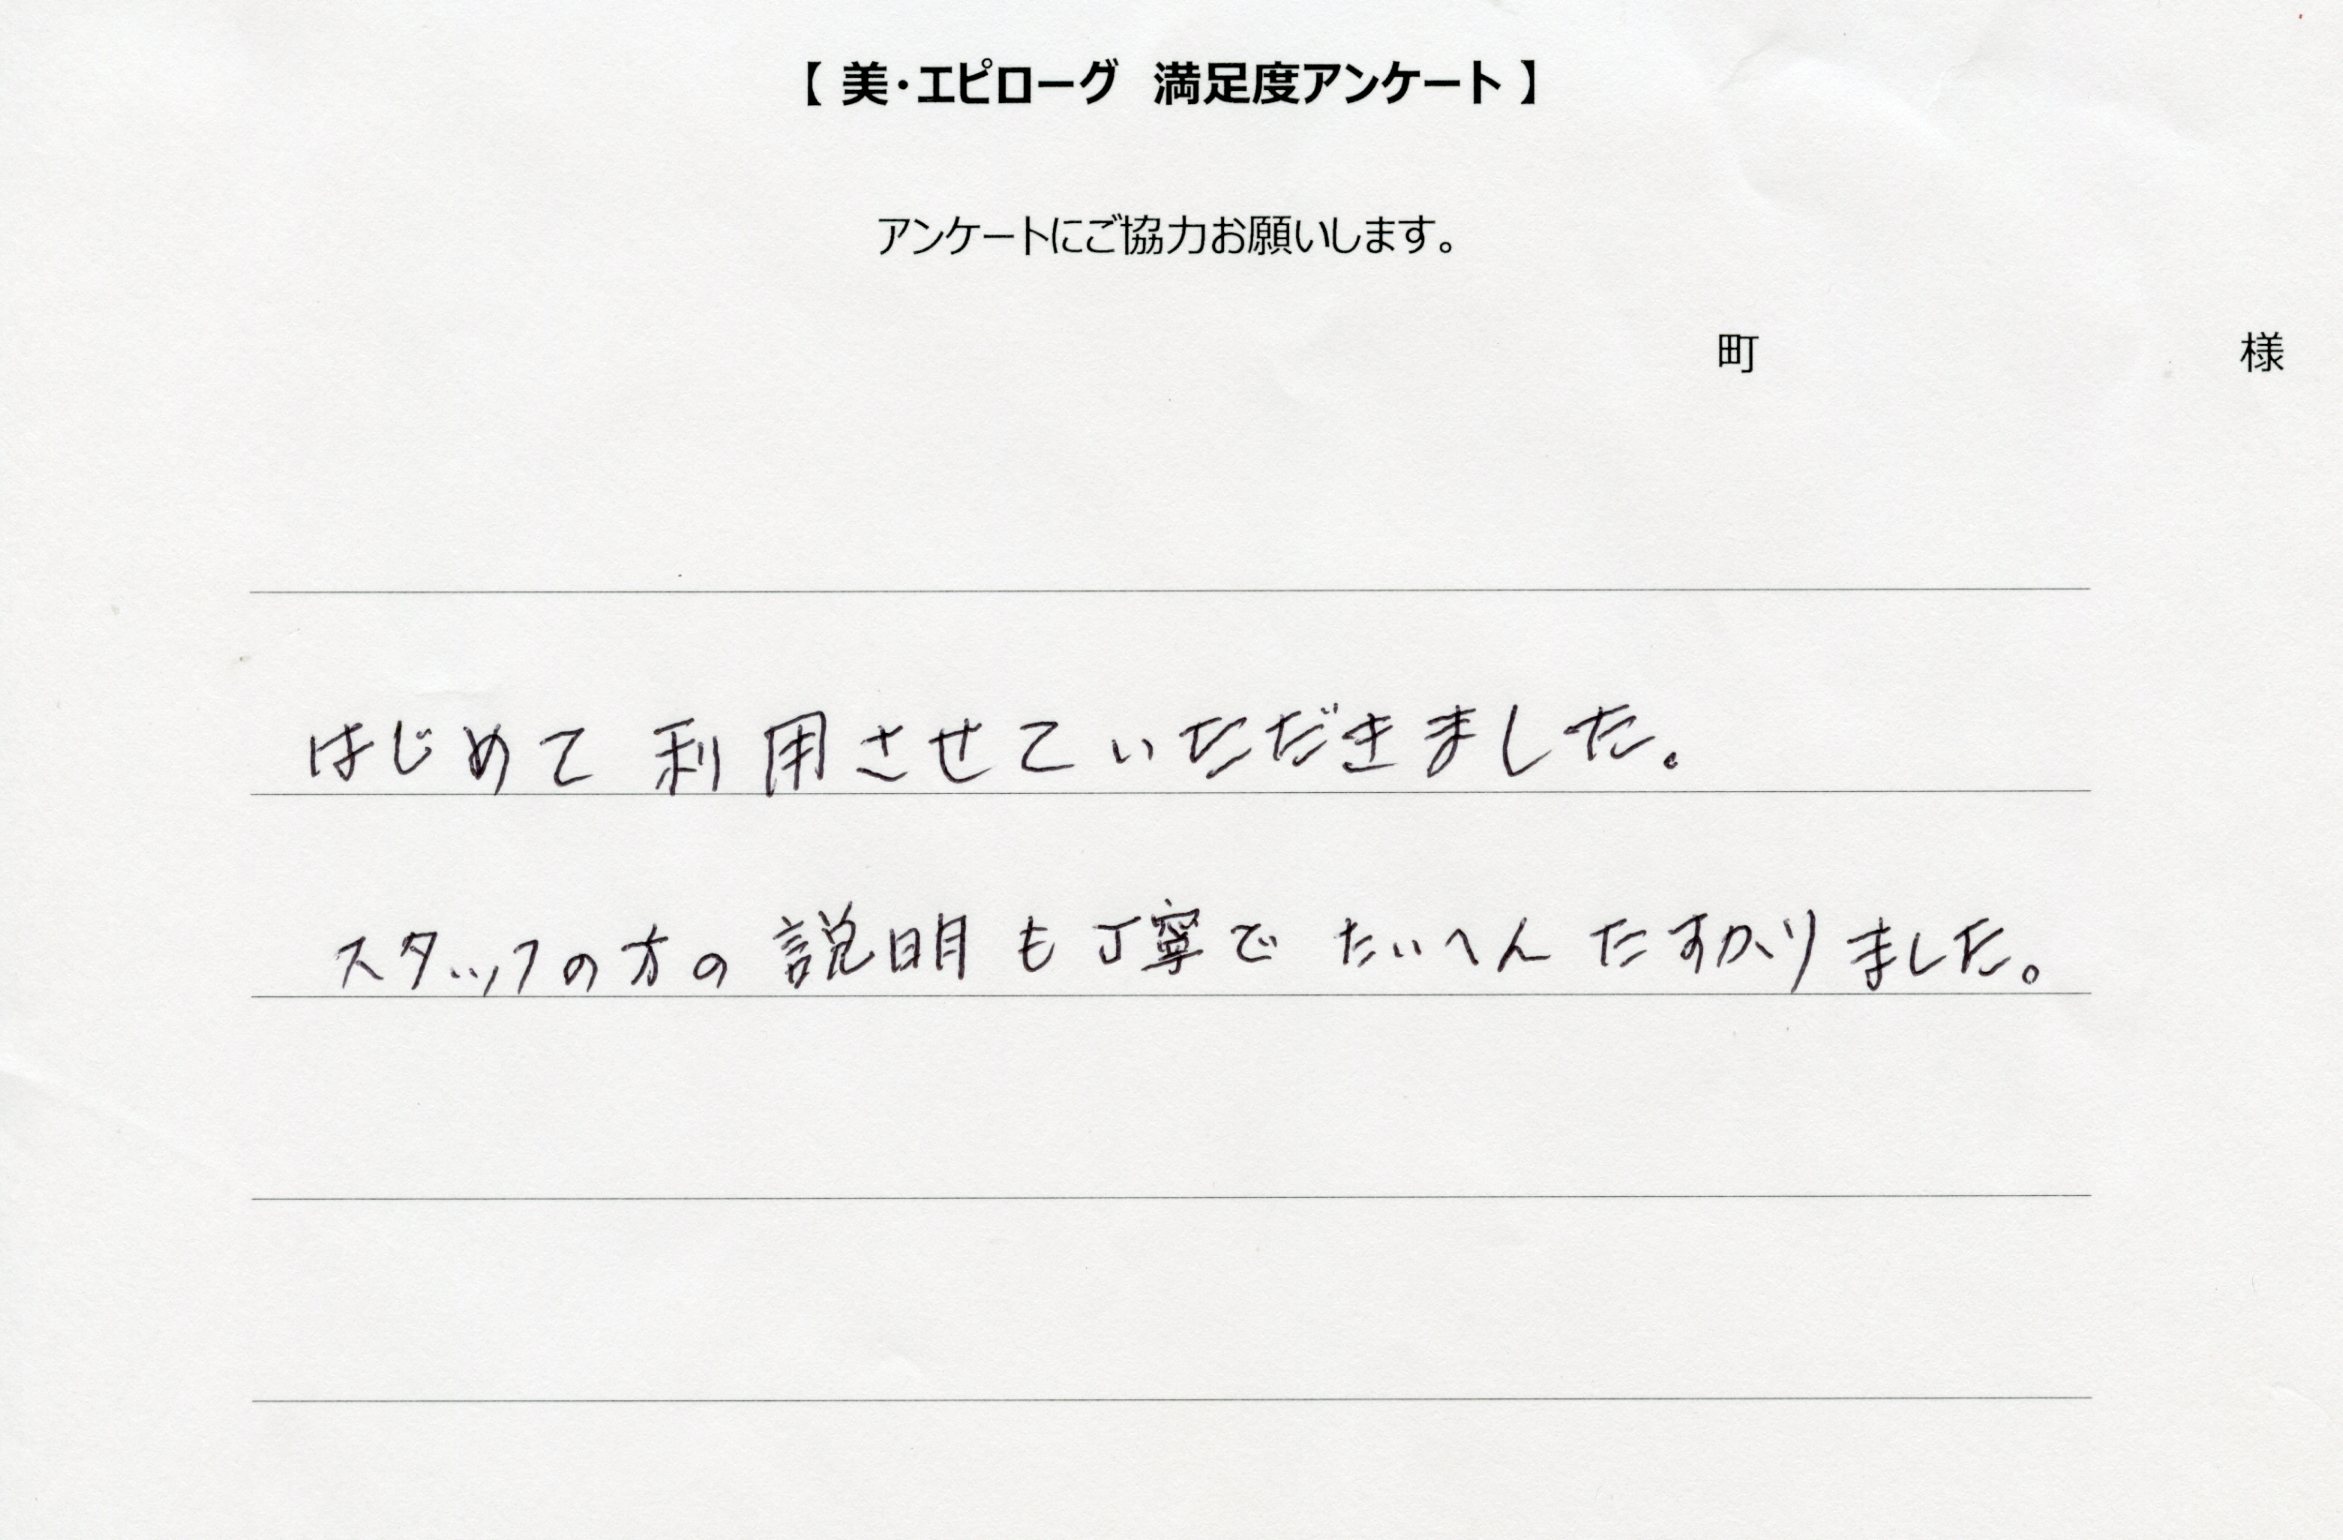 【 美・エピローグ　満足度アンケート 】
アンケートにご協力お願いします。
町　様
はじめて 利用させていただきました。
スタッフの方の 説明も丁寧で たいへん たすかりました。